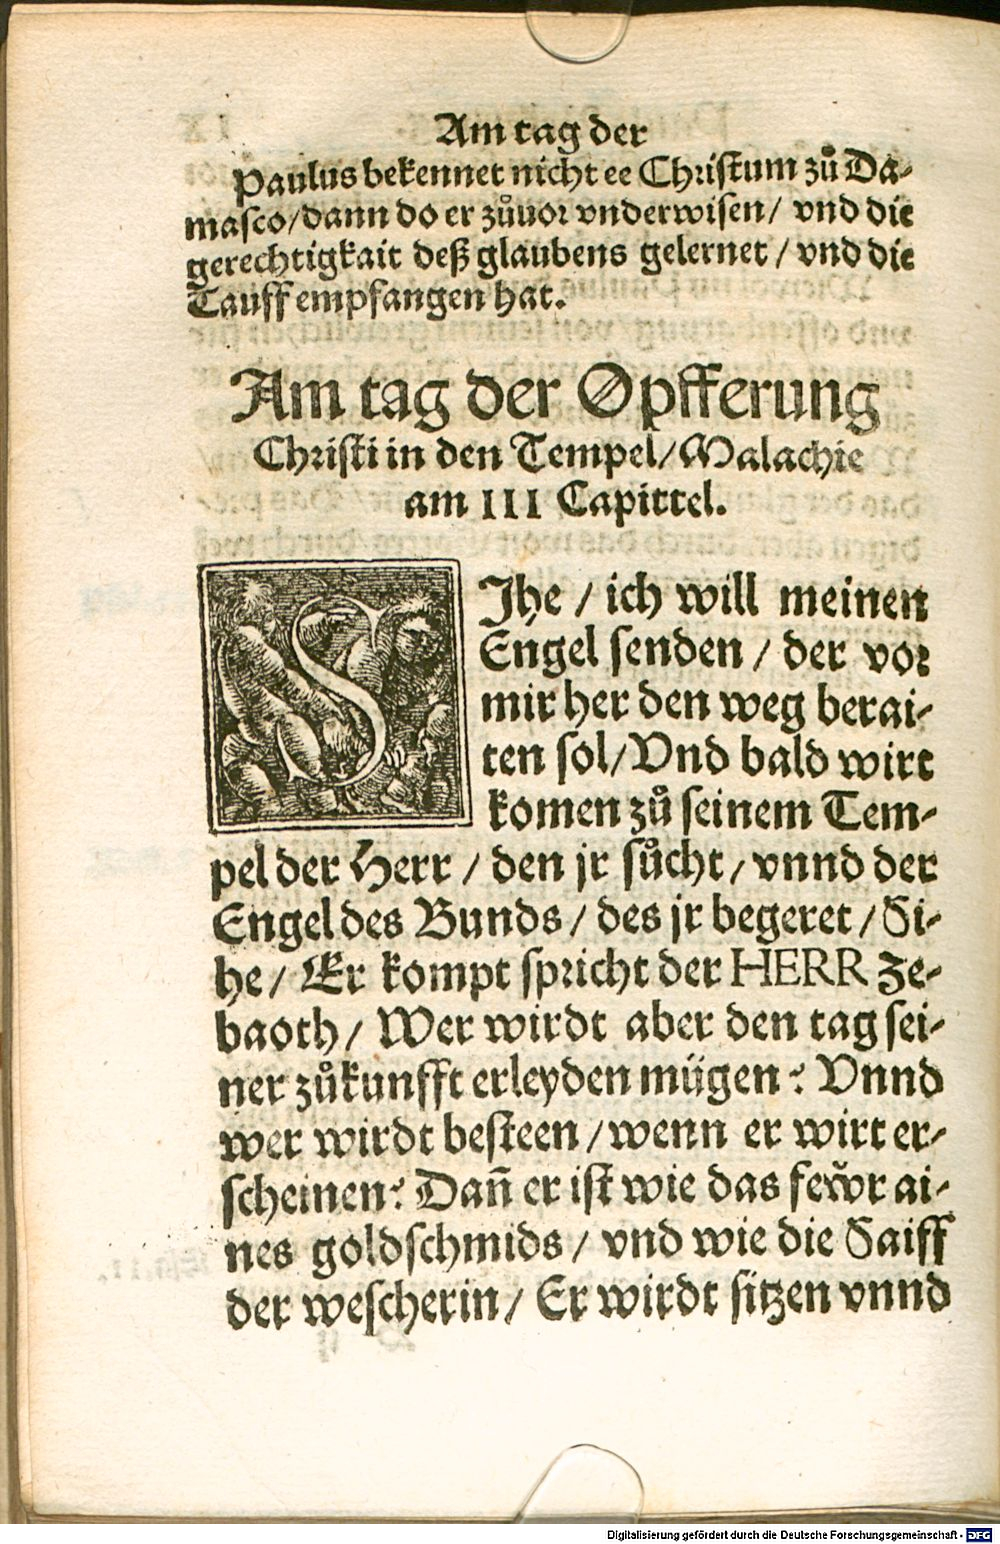 Am tag der
Paulus bekennet nicht ee Christum zů Da-
masco/dann do er zůuor vnderwisen/ vnd die
gerechtigkait deß glaubens gelernet / vnd die
Tauff empfangen hat.
Am tag der Opfferung
Christi in den Tempel/Malachie
am III Capittel.
SIhe / ich will meinen
Engel senden / der vor
mir her den weg berai-
ten sol/Vnd bald wirt
komen zů seinem Tem-
pel der Herr / den jr sůcht/ vnnd der
Engel des Bunds / des jr begeret / Si-
he / Er kompt spricht der HERR Ze-
baoth / Wer wirdt aber den tag sei-
ner zůkunfft erleyden mügen? Vnnd
wer wirdt besteen /wenn er wirt er-
scheinen? Dañ er ist wie das fewr ai-
nes goldschmids / vnd wie die Saiff
der wescherin / Er wirdt sitzen vnnd
Digitalisierung gefördert durch die Deutsche Forschungsgemeinschaft - DFG